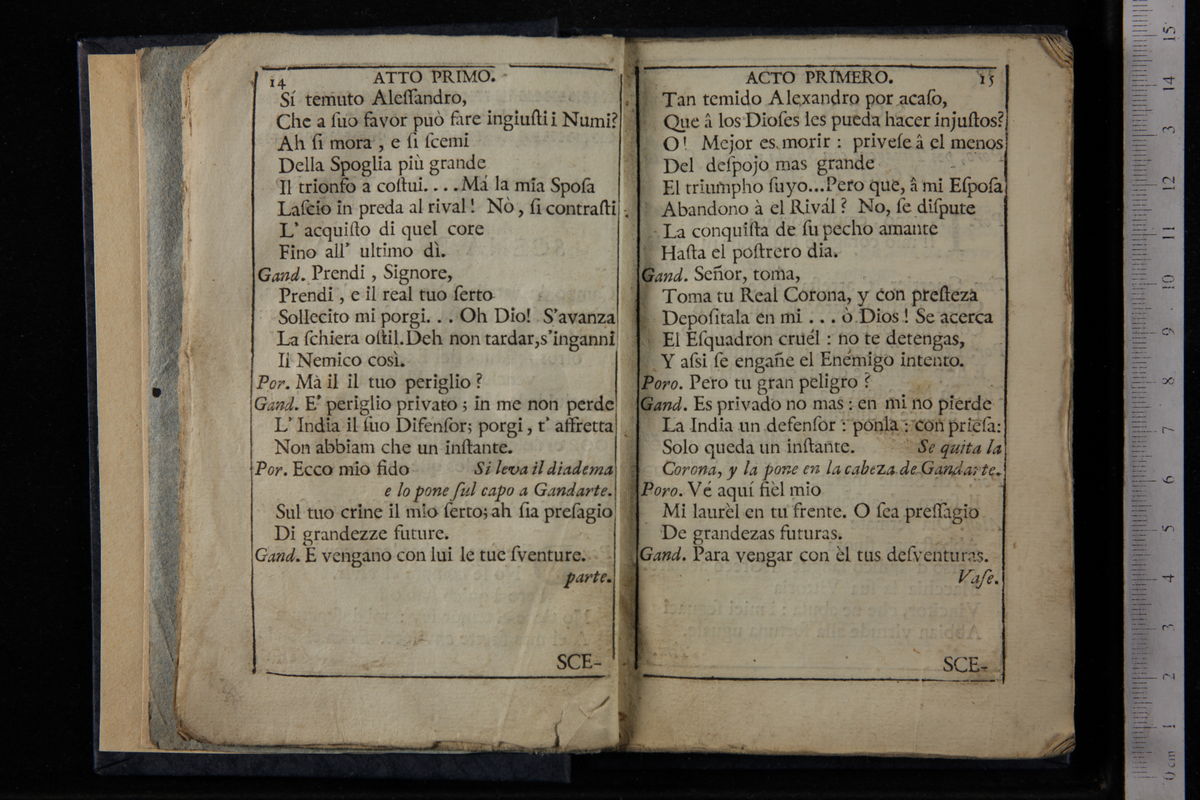 14 ATTO PRIMO.
Sí temuto Aleſſandro,
Che a ſuo favor può fare ingiuſti i Numi?
Ah ſi mora , e ſi ſcemi
Della Spoglia più grande
Il trionfo a coſtui. . . . Má la mia Spoſa
Laſcio in preda al rival! Nò, ſi contraſti
L' acquiſto di quel core
Fino all' ultimo dì.
Gand. Prendi , Signore,
Prendi , e il real tuo ſerto
Sollecito mi porgi. . . Oh Dio! S'avanza
La ſchiera oſtil. Deh non tardar, s'inganni
Il Nemico così.
Por. Mà il il tuo periglio ?
Gand. E' periglio privato ; in me non perde
L' India il ſuo Difenſor; porgi, t' affretta
Non abbiam che un inſtante.
Por. Ecco mio fido Si leva il diadema
e lo pone ſul capo a Gandarte.
Sul tuo crine il mio ſerto; ah ſia preſagio
Di grandezze future.
Gand. E vengano con lui le tue ſventure.
parte.
SCE-
ACTO PRIMERO. 15
Tan temido Alexandro por acaſo,
Que â los Dioſes les pueda hacer injuſtos?
O! Mejor es morir : priveſe â el menos
Del deſpojo mas grande
El triumpho ſuyo...Pero que, â mi Eſpoſa
Abandono à el Rivál ? No, ſe diſpute
La conquiſta de ſu pecho amante
Haſta el poſtrero dia.
Gand. Señor, toma,
Toma tu Real Corona, y con preſteza
Depoſitala en mi . . . ò Dios ! Se acerca
El Eſquadron cruél : no te detengas,
Y aſsi ſe engañe el Enémigo intento.
Poro. Pero tu gran peligro ?
Gand. Es privado no mas : en mi no pierde
La India un defenſor : ponla : con prieſa:
Solo queda un inſtante. Se quita la
Corona, y la pone en la cabeza de Gandarte.
Poro. Vé aquí fièl mio
Mi laurèl en tu frente. O ſea preſſagio
De grandezas futuras.
Gand. Para vengar con èl tus deſventuras.
Vaſe.
SCE-